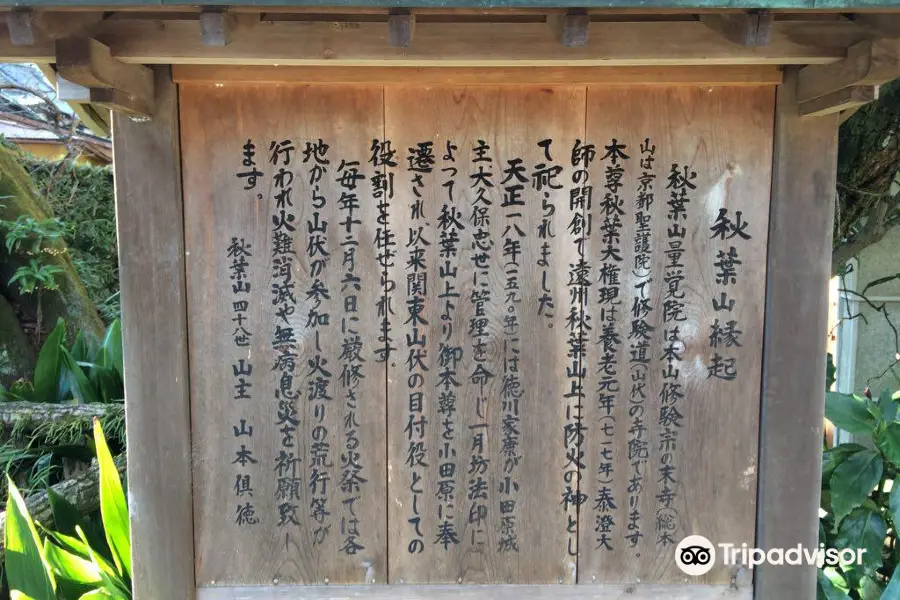 秋葉山縁起
秋葉山量覚院は本山修験宗の末寺(総本
山は京都聖護院)で修験道(山伏)の寺院であります。
本尊秋葉大権現は養老元年(七一七年)泰澄大
師の開創で遠州秋葉山上に防火の神とし
て祀られました。
天正一八年(一五九〇年)には徳川家康が小田原城
主大久保忠世に管理を命じ一月坊法印に
よって秋葉山上より御本尊を小田原に奉
遷され以来関東山伏の目付役としての
役割を任せられます。
毎年十二月六日に厳修される火祭では各
地から山伏が参加し火渡りの荒行等が
行われ火難消滅や無病息災を祈願致し
ます。
秋葉山四十八世 山主 山本俱徳
Tripadvisor